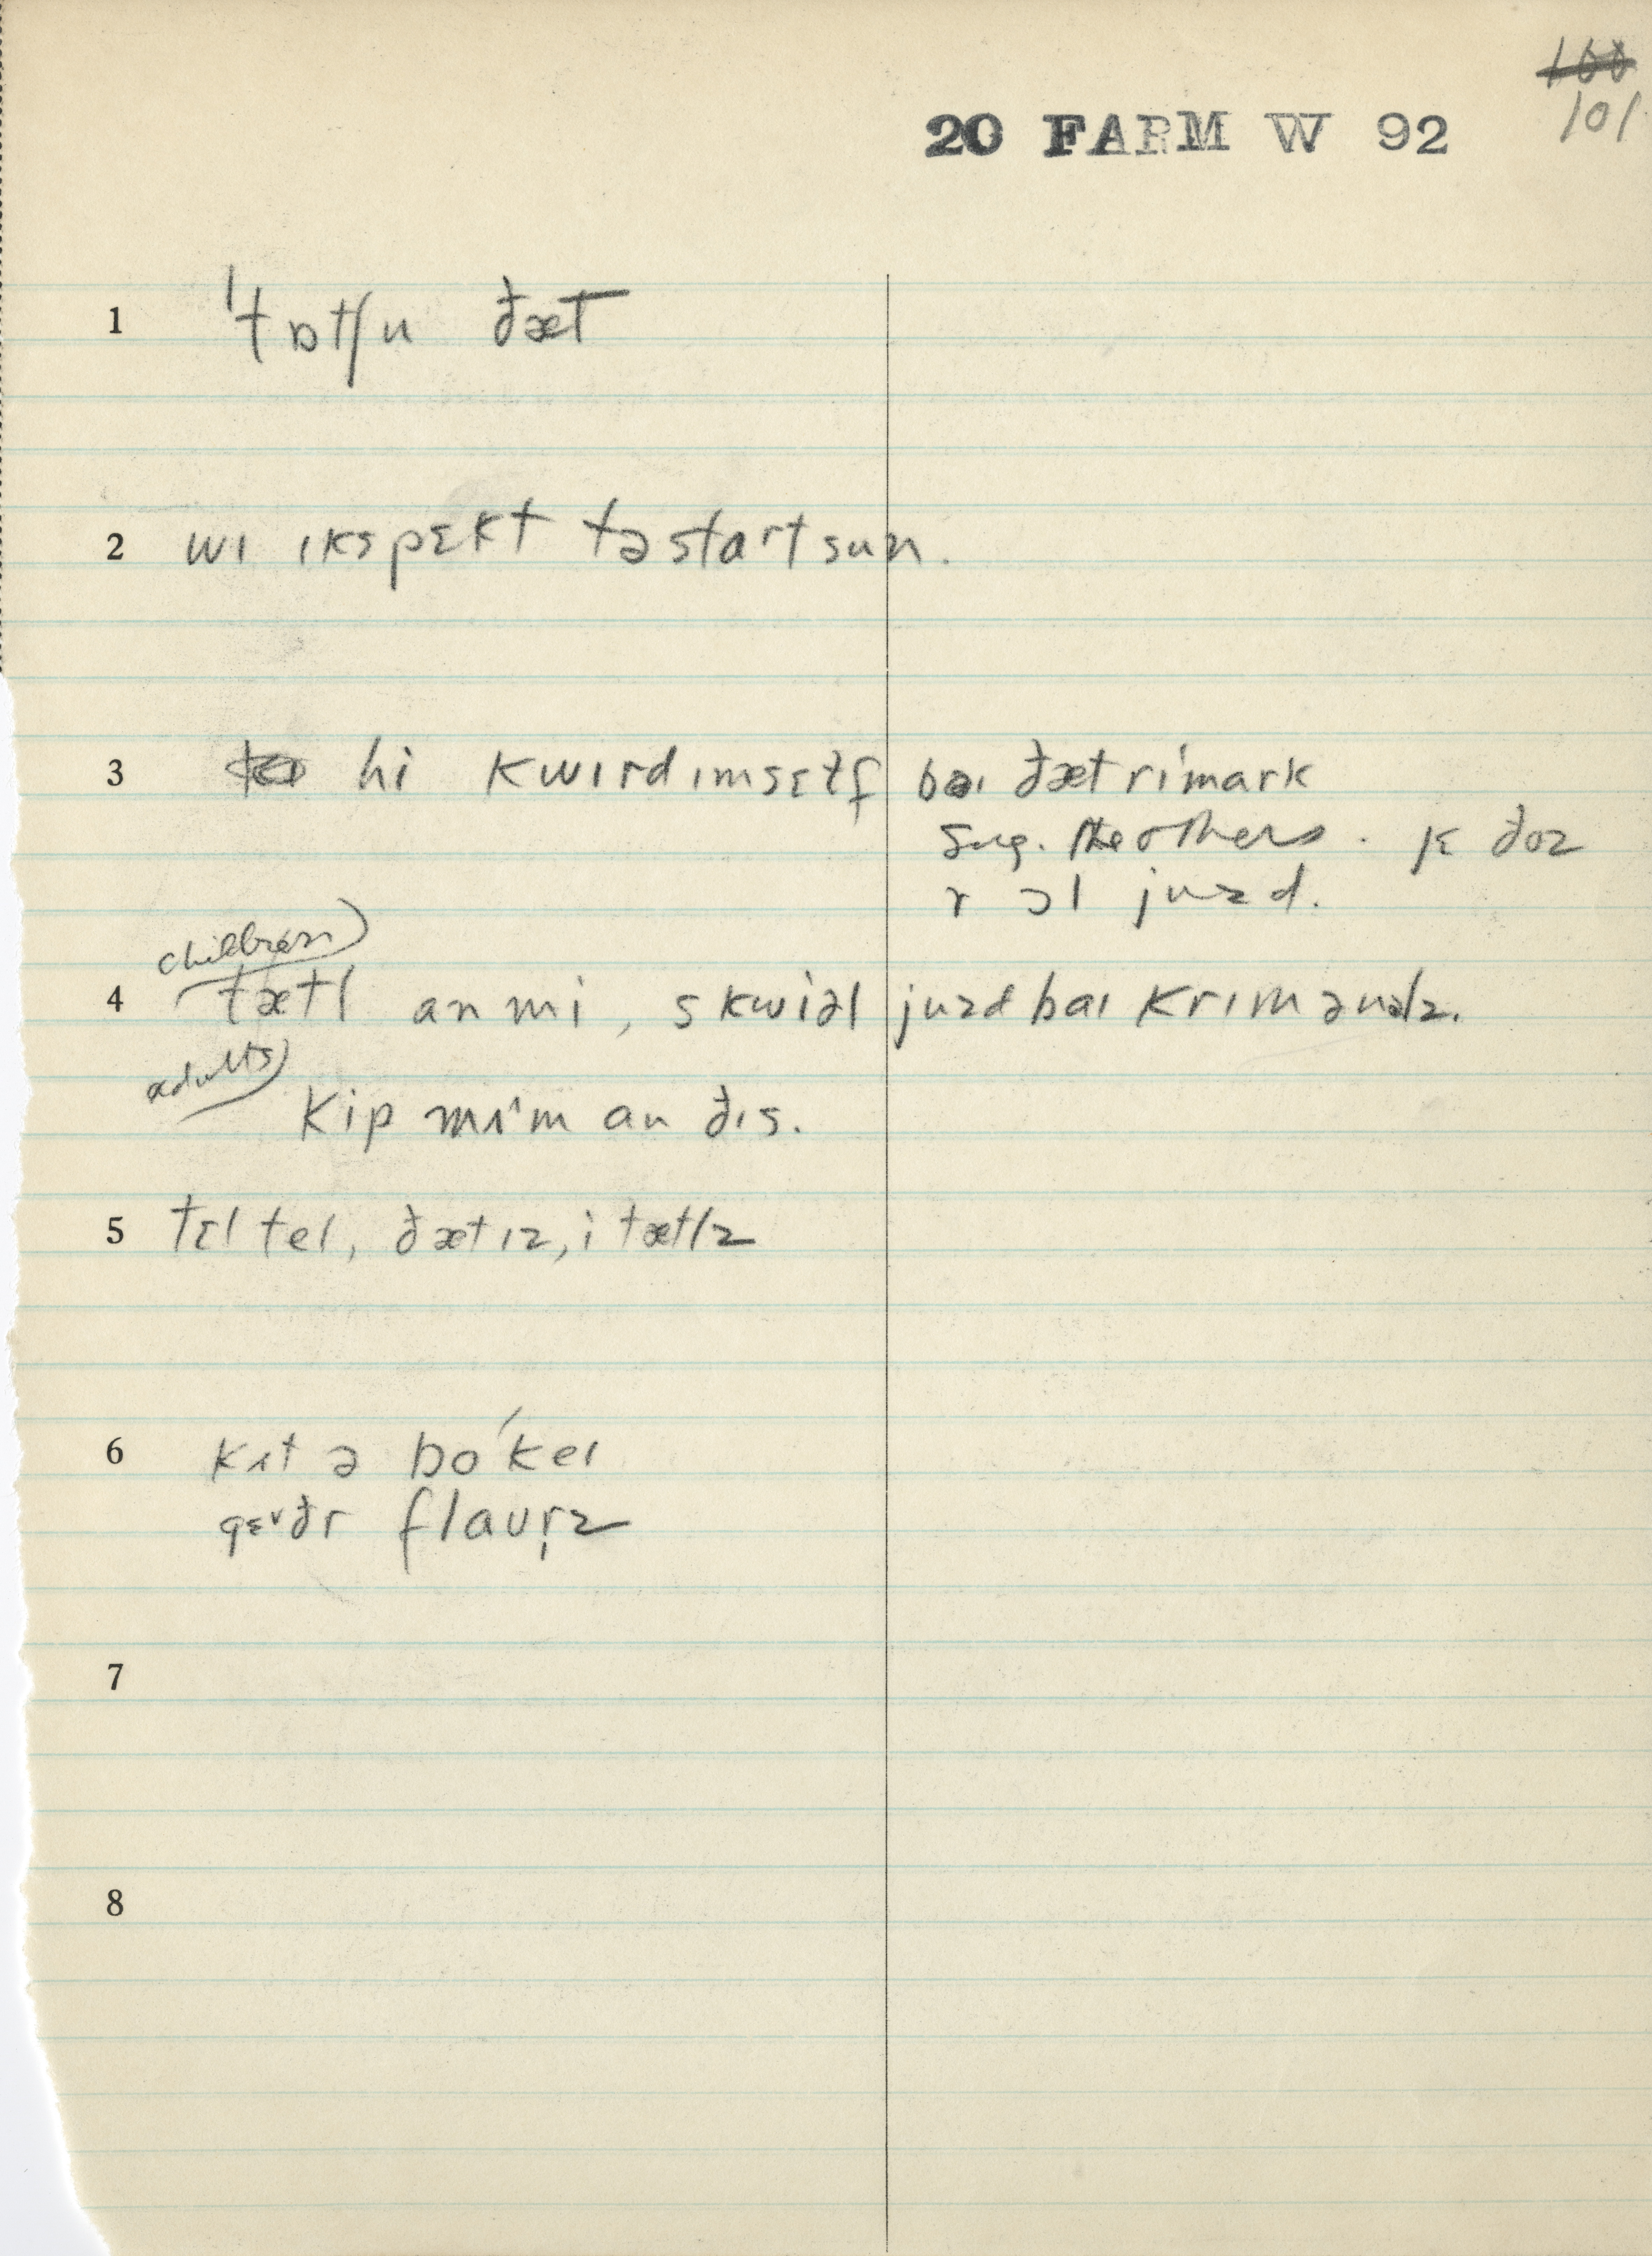 100
101
20 FARM W 92
1 ˈtɒtʃu ðæt
2 wɪ ɪkspɛkt tə start sun.
3 hi kwɪrd ɪmsɛɫf baɪ ðæt rɪˈmark
sug. the others. jɛ ðoz
r ɔl juzd.
children)
4 tætl an mi, skwiəl juzd baɪ krɪmənəlz.
adults)
kip mʌˈm an ðɪs.
5 tɛl teɪ, ðæt ɪz, i tætlz
6 kʌt ə boˈkeɪ
gɛðr flaʊr̩z
7
8